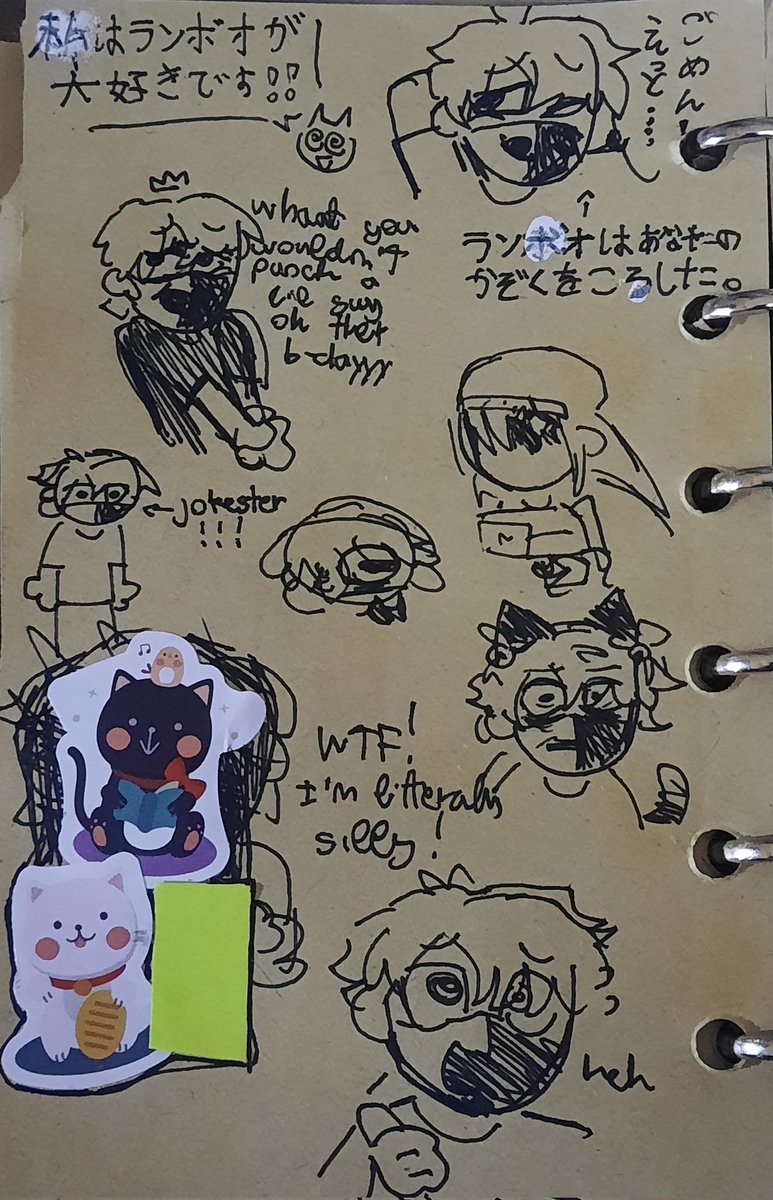 私はランボオが
大好きです!!
ごめん!
えっと....
ランボオはあなたの
かぞくをころした。
whaat you
wouldn't
punch a
lil guy
oh thet
b-dayyy
jokester
!!!
WTF!
I'm litteraly
silly!
heh